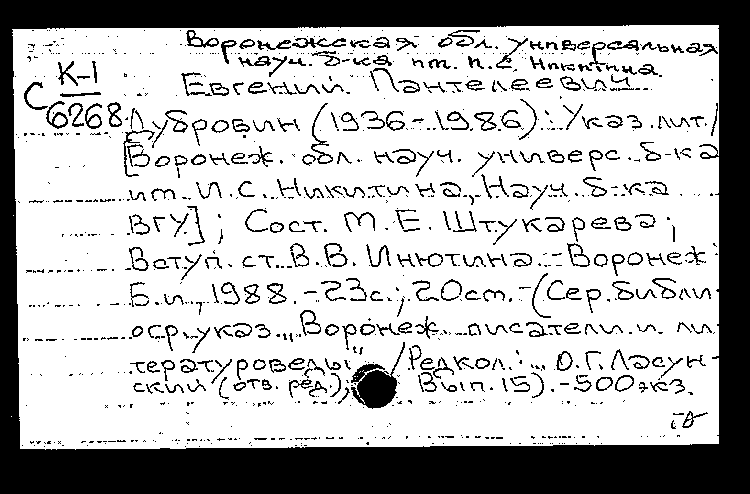 Воронежская обл. универсальная
науч. б-ка им. И. С. Никитина
К-1
Евгений Пантелеевич
С
6268
Дубровин (1936-1986): Указ. лит./
[Воронеж. обл. науч. универс. б-ка
им. И.С. Никитина, Науч. б-ка
ВГУ]; Сост. М.Е. Штукарева;
Вступ. ст. В.В. Инютина.-Воронеж:
Б.и., 1988.-23с.; 20см.-(Сер. библи-
огр. указ. „Воронеж. писатели и ли-
тературоведы“ / Редкол.: „ О.Г. Ласун-
ский (отв. ред.); Вып. 15).-500 экз.